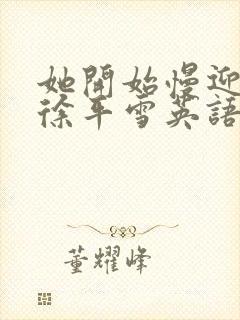 她開始慢迎
徐平雪英語
董耀峰